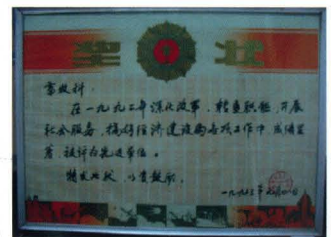 奖 状
在一九九二年深化改革，转变职能，开展
社会服务，搞好经济建设的各项工作中，成绩显
著，被评为先进单位。
特发此状，以资鼓励。
一九九三年